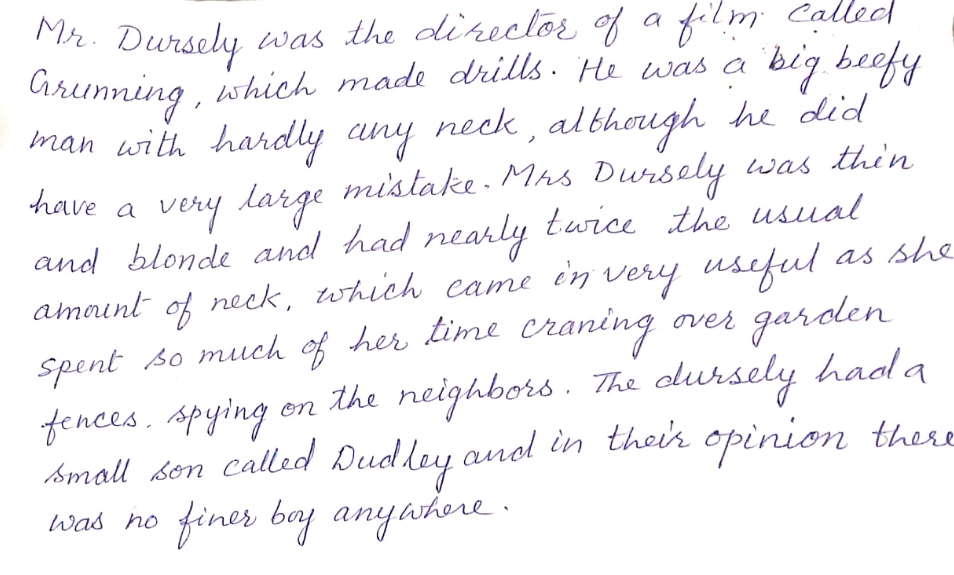 Mr. Dursely was the director of a film called
Grunning, which made drills. He was a big beefy
man with hardly any neck, although he did
have a very large mistake. Mrs Dursely was thin
and blonde and had nearly twice the usual
amount of neck, which came in very useful as she
spent so much of her time craning over garden
fences, spying on the neighbors. The dursely had a
small son called Dudley and in their opinion there
was no finer boy anywhere.